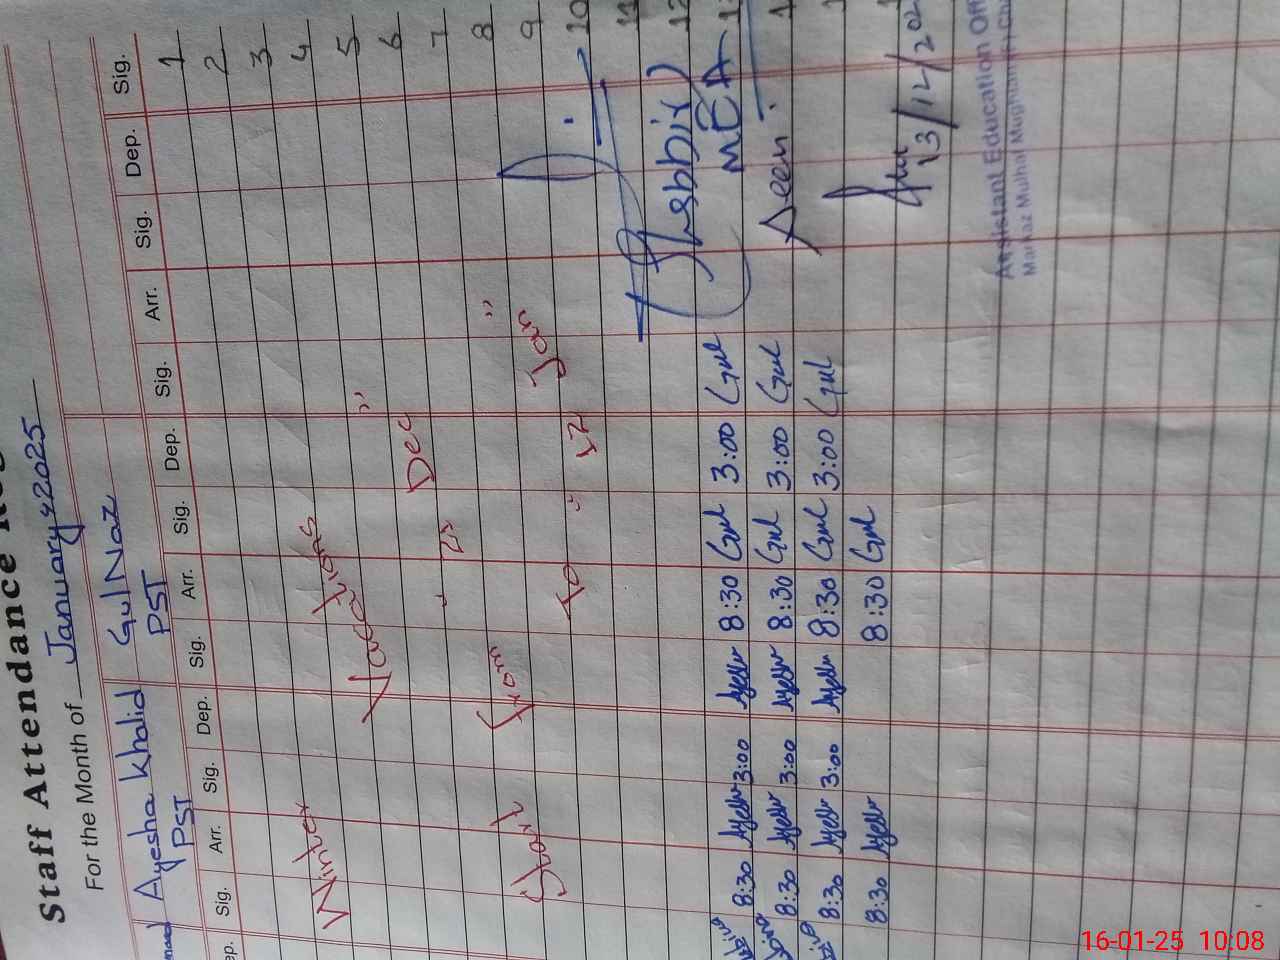 Staff Attendance
For the Month of January 2025
Ayesha Khalid Gul Naz
PST PST
Dep. Sig. Arr. Sig. Dep. Sig. Arr. Sig. Dep. Sig. Arr. Sig. Dep. Sig.
1
2
3
4
5
6
7
8
9
10
11
12
Winter Vacations "
" 23 Dec
Start From "
To " 12 Jan
8:30 Ayesha 3:00 Ayesha 8:30 Gul 3:00 Gul
8:30 Ayesha 3:00 Ayesha 8:30 Gul 3:00 Gul
8:30 Ayesha 3:00 Ayesha 8:30 Gul 3:00 Gul
8:30 Ayesha 8:30 Gul
(Shabbir)
MEA
Seen.
Assistant Education
Markaz Mulhal Mughlan
16-01-25 10:08